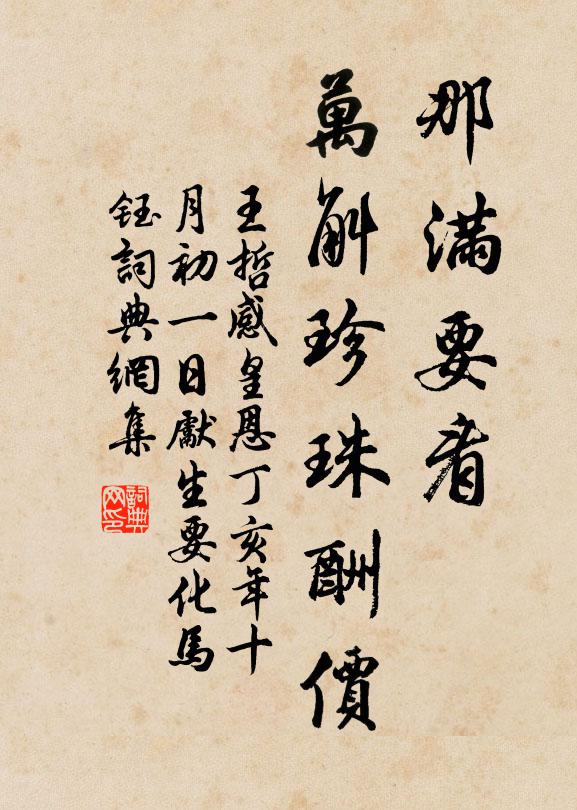 那滿要看
萬斛珍珠酬價
王哲感皇恩丁亥年十
月初一日獻生要化馬
鈺詞典網集
詞典
网印